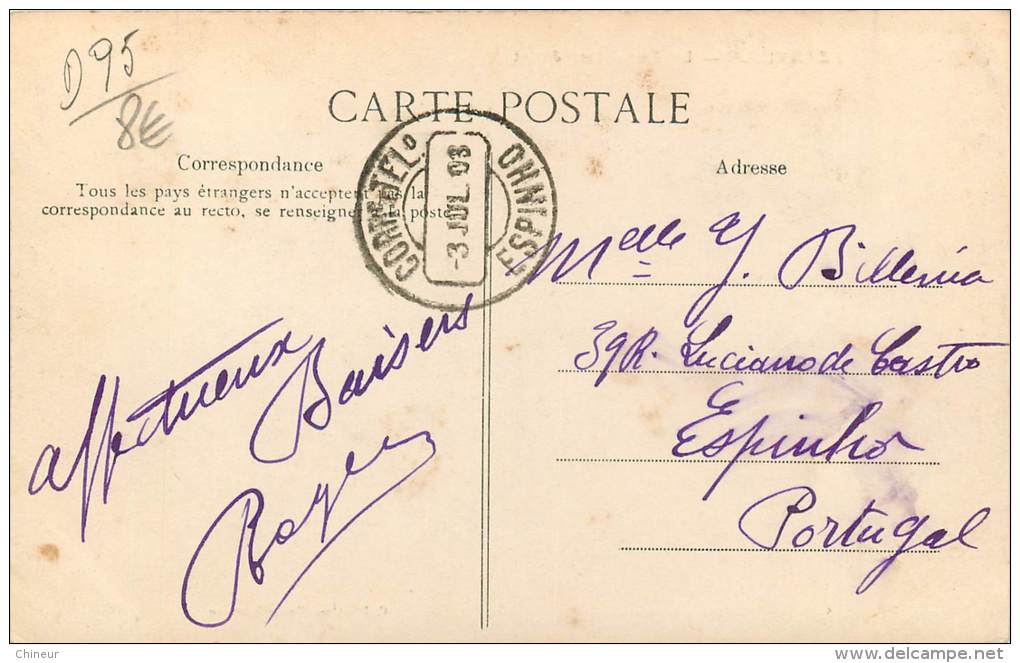 D95
8€
CARTE POSTALE
Correspondance
Tous les pays étrangers n'acceptent pas la
correspondance au recto, se renseigner à la poste
CORRº E TELº
-3 JUL 08
ESPINHO
Adresse
Melle Y. Billenia
39 R. Luciano de Castro
Espinho
Portugal
affectueux
Baisers
Roger
Chineur
www.delcampe.net